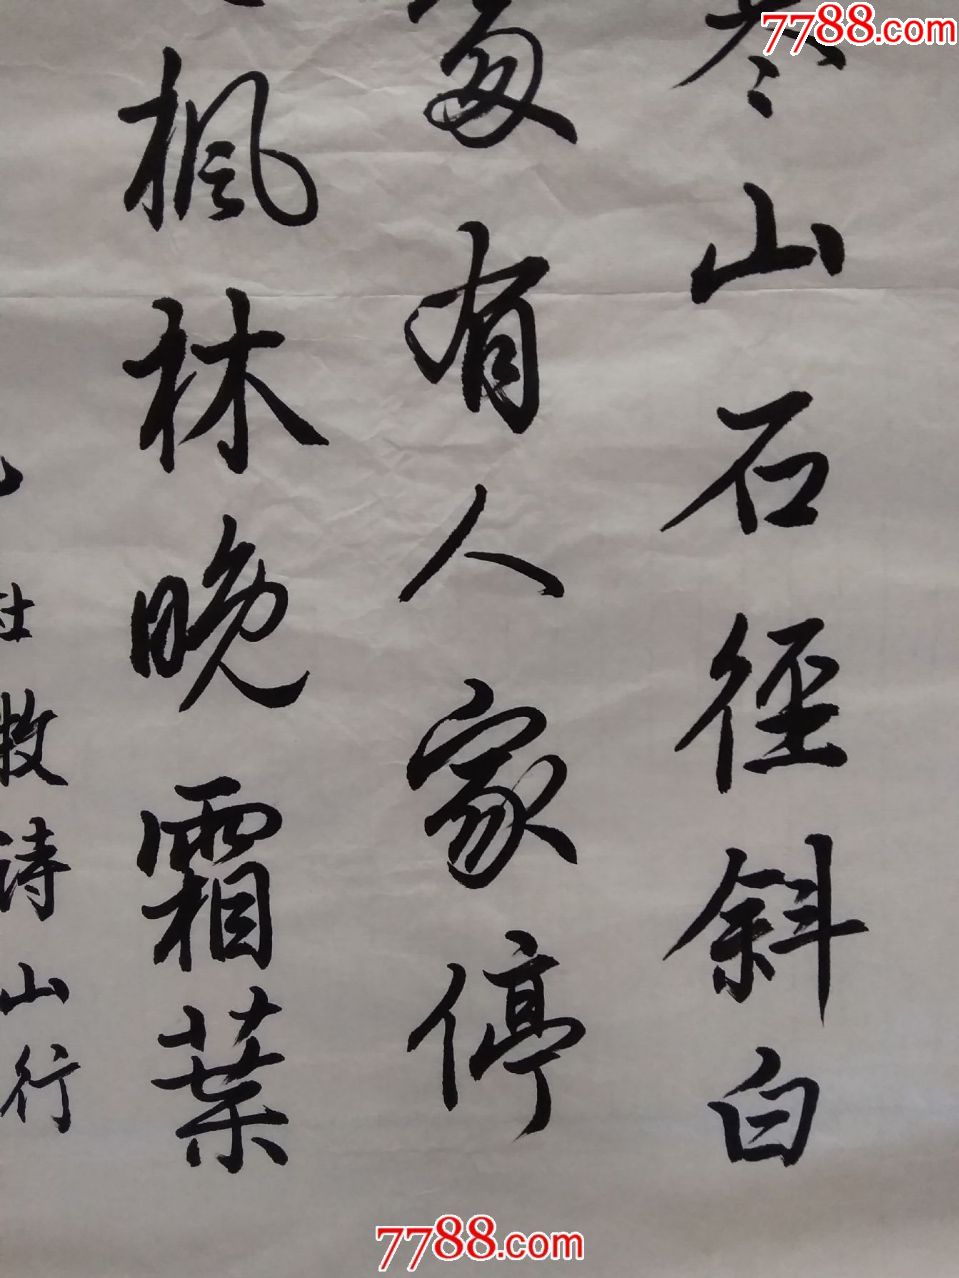 7788.com
寒山石径斜白
有人家停
楓林晚霜葉
杜牧诗山行
7788.com